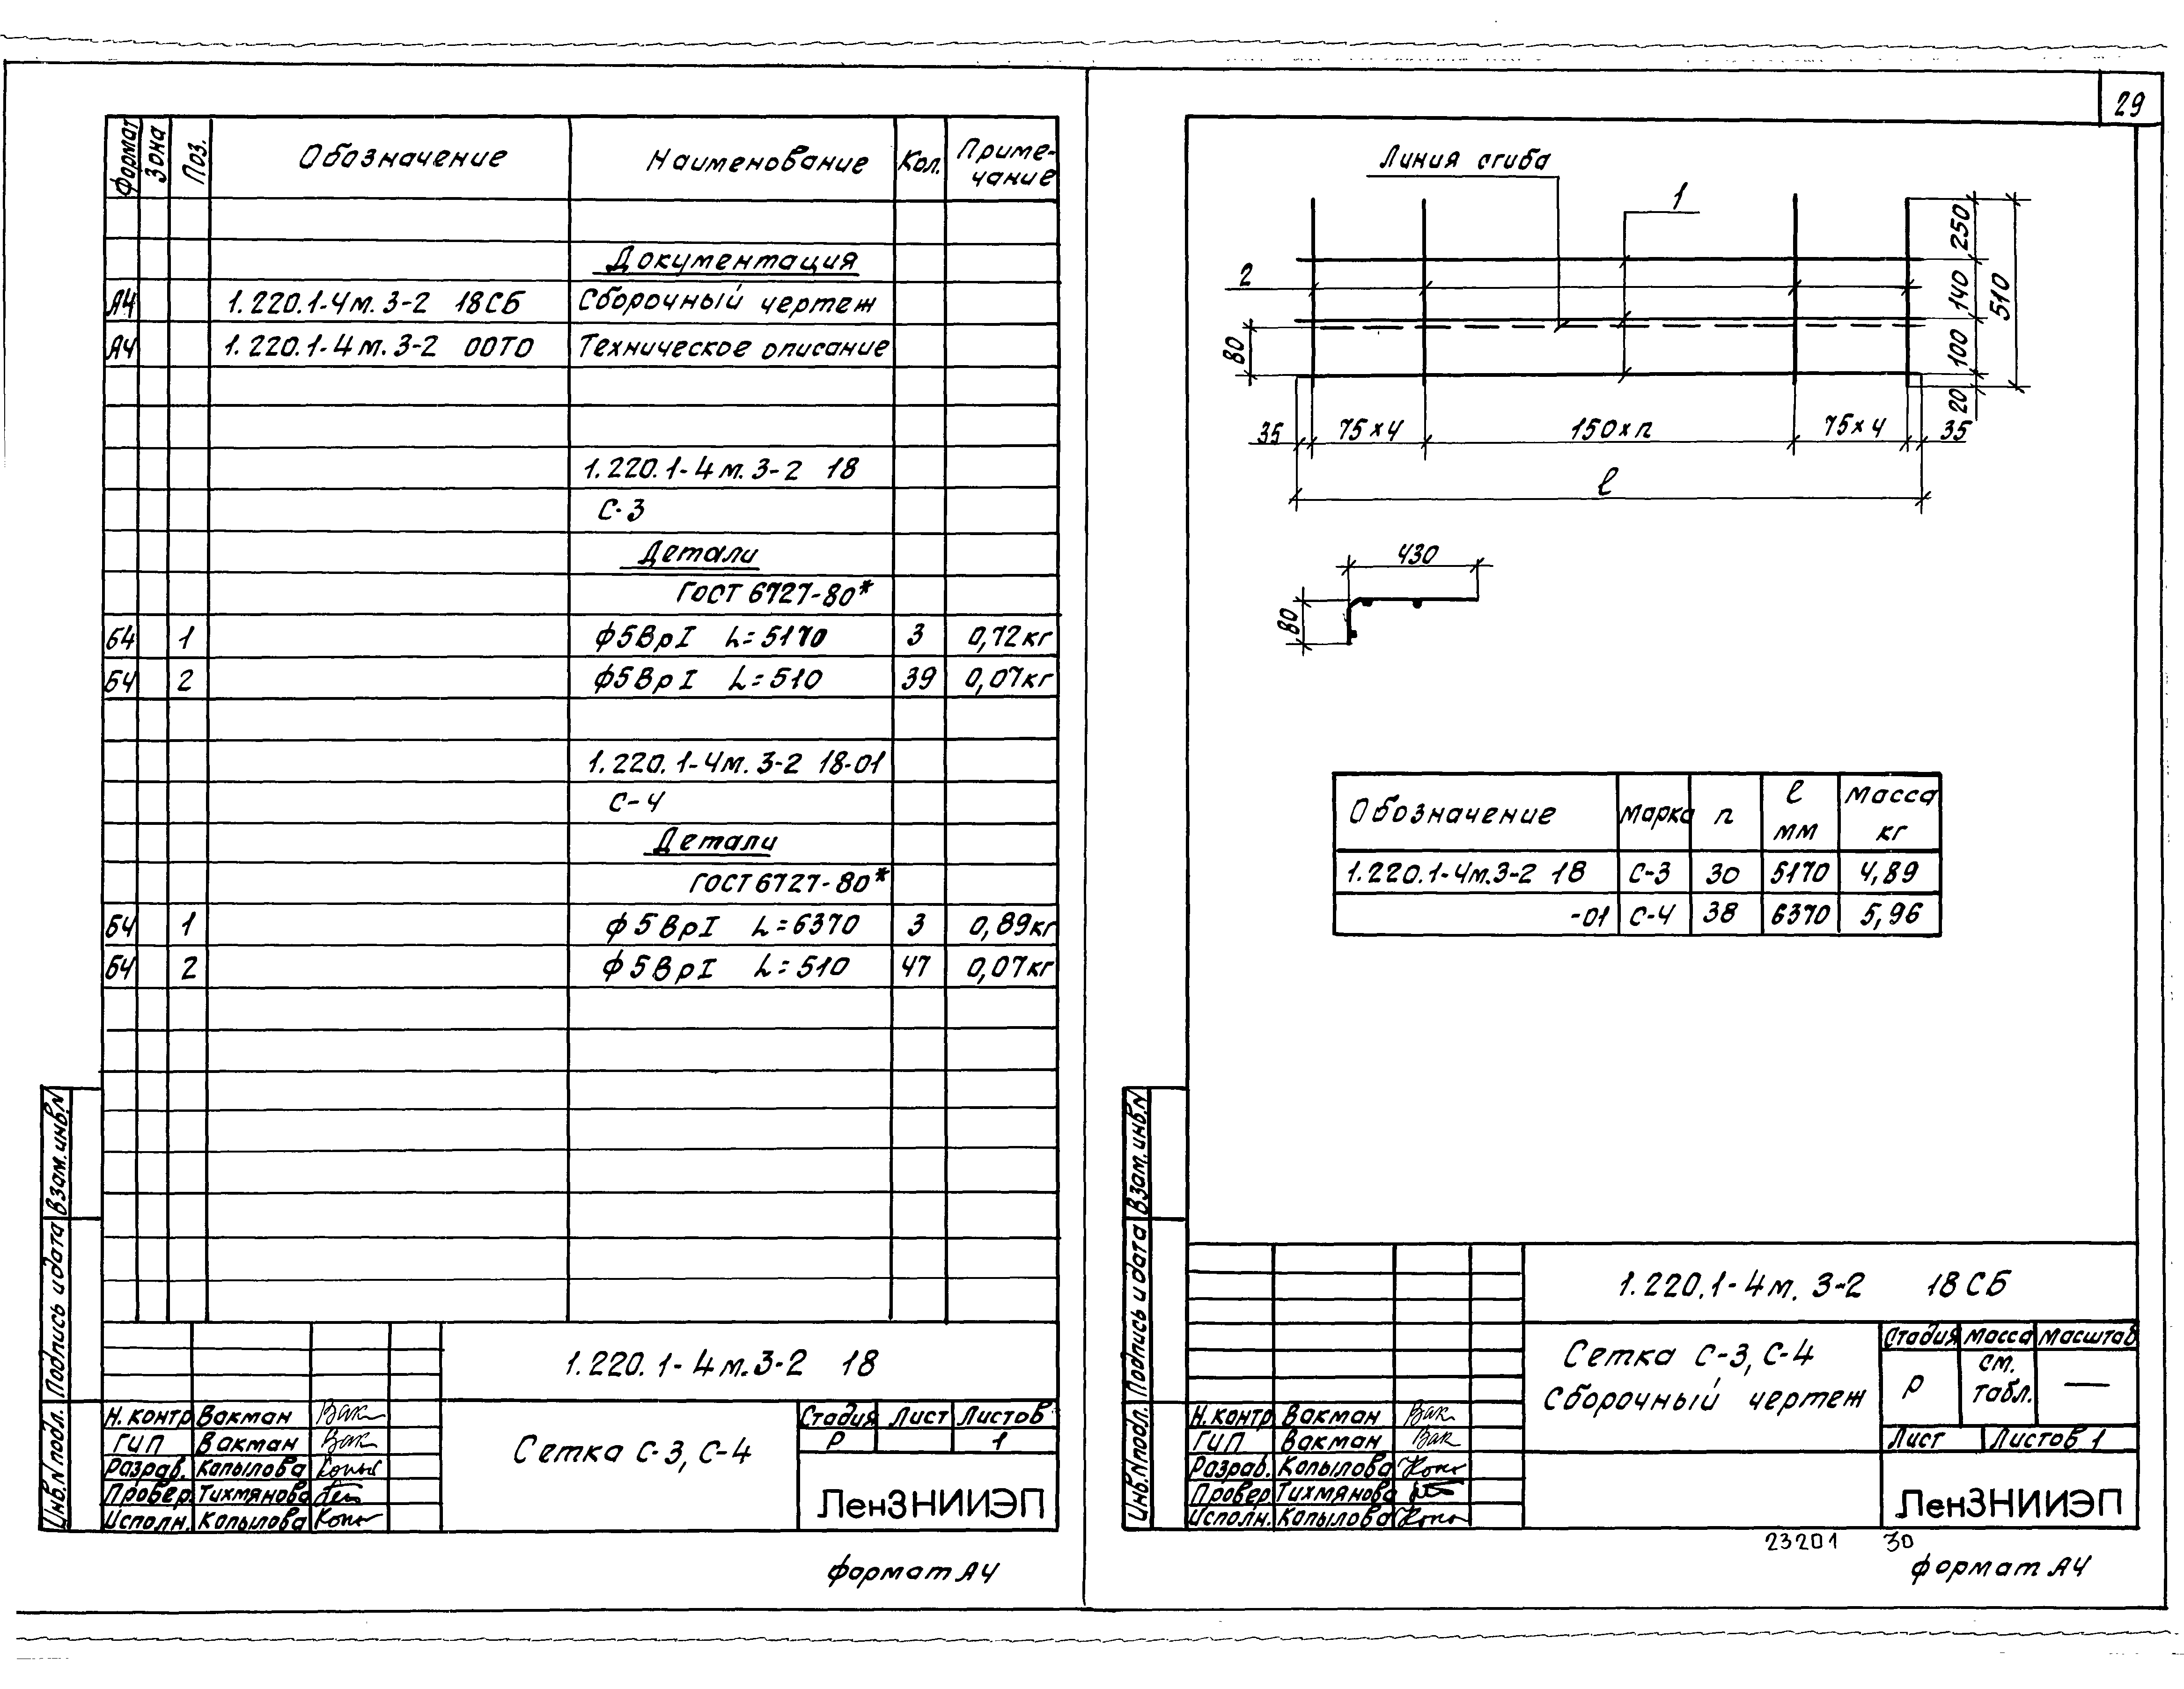 29
Формат Зона Поз. Обозначение Наименование Кол. Приме-
чание
Документация
А4 1.220.1-4м.3-2 18СБ Сборочный чертеж
А4 1.220.1-4м.3-2 00ТО Техническое описание
1.220.1-4м.3-2 18
С-3
Детали
ГОСТ 6727-80*
Б4 1 ф5ВрI L=5170 3 0,72кг
Б4 2 ф5ВрI L=510 39 0,07кг
1.220.1-4м.3-2 18-01
С-4
Детали
ГОСТ 6727-80*
Б4 1 ф5ВрI L=6370 3 0,89кг
Б4 2 ф5ВрI L=510 47 0,07кг
Инв.N подл. Подпись и дата Взам.инв.N
1.220.1-4м.3-2 18
Н.контр Вакман
ГИП Вакман
Разраб. Копылова
Провер. Тихмянова
Исполн. Копылова
Сетка С-3, С-4
Стадия Лист Листов
Р 1
ЛенЗНИИЭП
формат А4
Линия сгиба
1
2
250
140
510
80
100
20
35 75х4 150хп 75х4 35
ℓ
430
80
Обозначение Марка п ℓ мм Масса кг
1.220.1-4м.3-2 18 С-3 30 5170 4,89
-01 С-4 38 6370 5,96
Инв.N подл. Подпись и дата Взам.инв.N
1.220.1-4м.3-2 18СБ
Сетка С-3, С-4
Сборочный чертеж
Стадия Масса Масштаб
Р см. табл. —
Лист Листов 1
Н.контр Вакман
ГИП Вакман
Разраб. Копылова
Провер. Тихмянова
Исполн. Копылова
ЛенЗНИИЭП
23201 30
формат А4